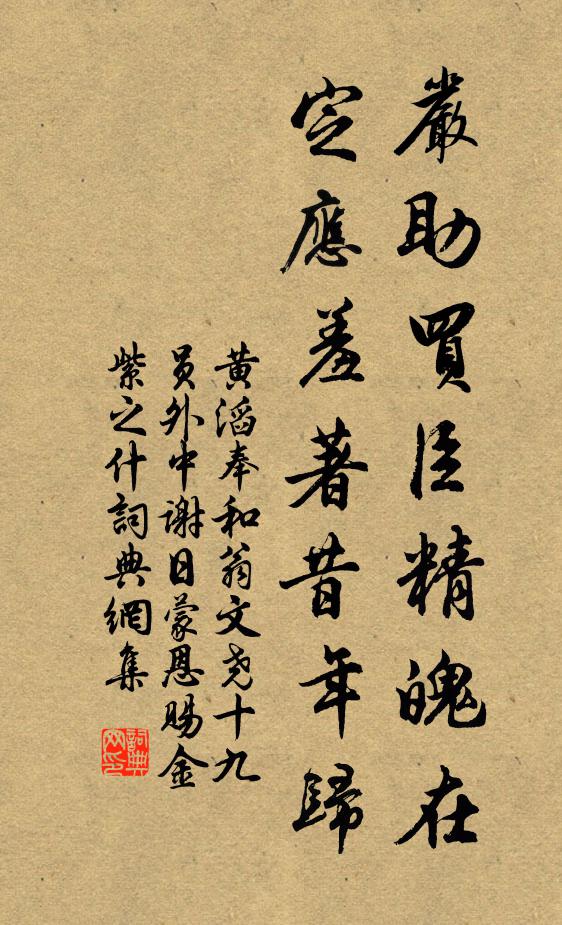 嚴助買臣精魄在
定應羞著昔年歸
黃滔奉和翁文堯十九
員外中謝日蒙恩賜金
紫之什詞典網集
詞典
网